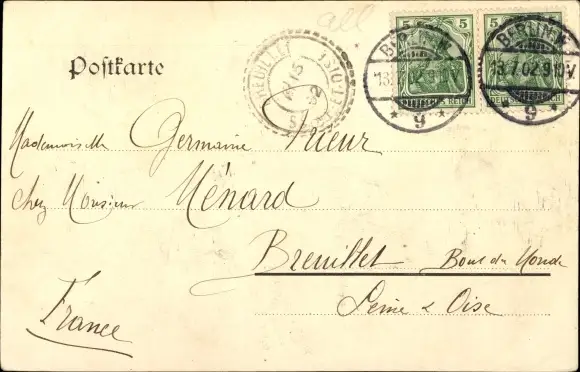 all
5 5
BERLIN.W. BERLIN.W.
13.7.02.9-10V 13.7.02.9-10V
* 9 * * 9 *
DEUTSCHES REICH
BREUILLET
15
02
Postkarte
Mademoiselle Germaine Prieur
chez Monsieur Ménard
Breuillet Bout du Monde
Seine & Oise
France